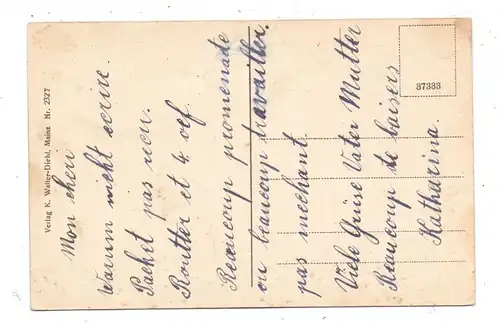 Mon cheri
Warum nicht ecrire.
Pachet pas recu.
Routter et 4 oef
Beaucoup promenade
ou beaucoup travailler.
pas mechant.
Viele Grüse Vater Mutter
Beaucoup de baisers
Katharina.
Verlag K. Walter-Diehl, Mainz Nr. 2327
37333